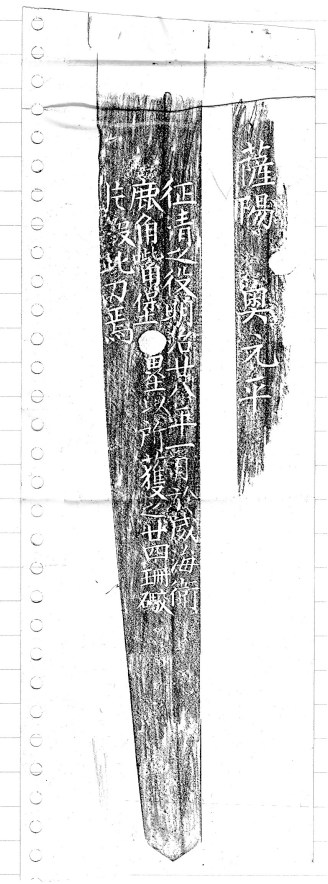 薩陽 奧元平
征清之役明治廿八年二月於威海衛
鹿角嘴堡壘以所獲之廿四珊礮
片鍛此刀焉